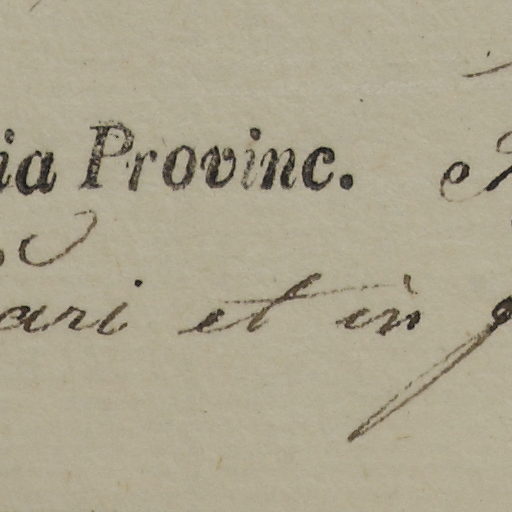 ia Provinc.
ari et in